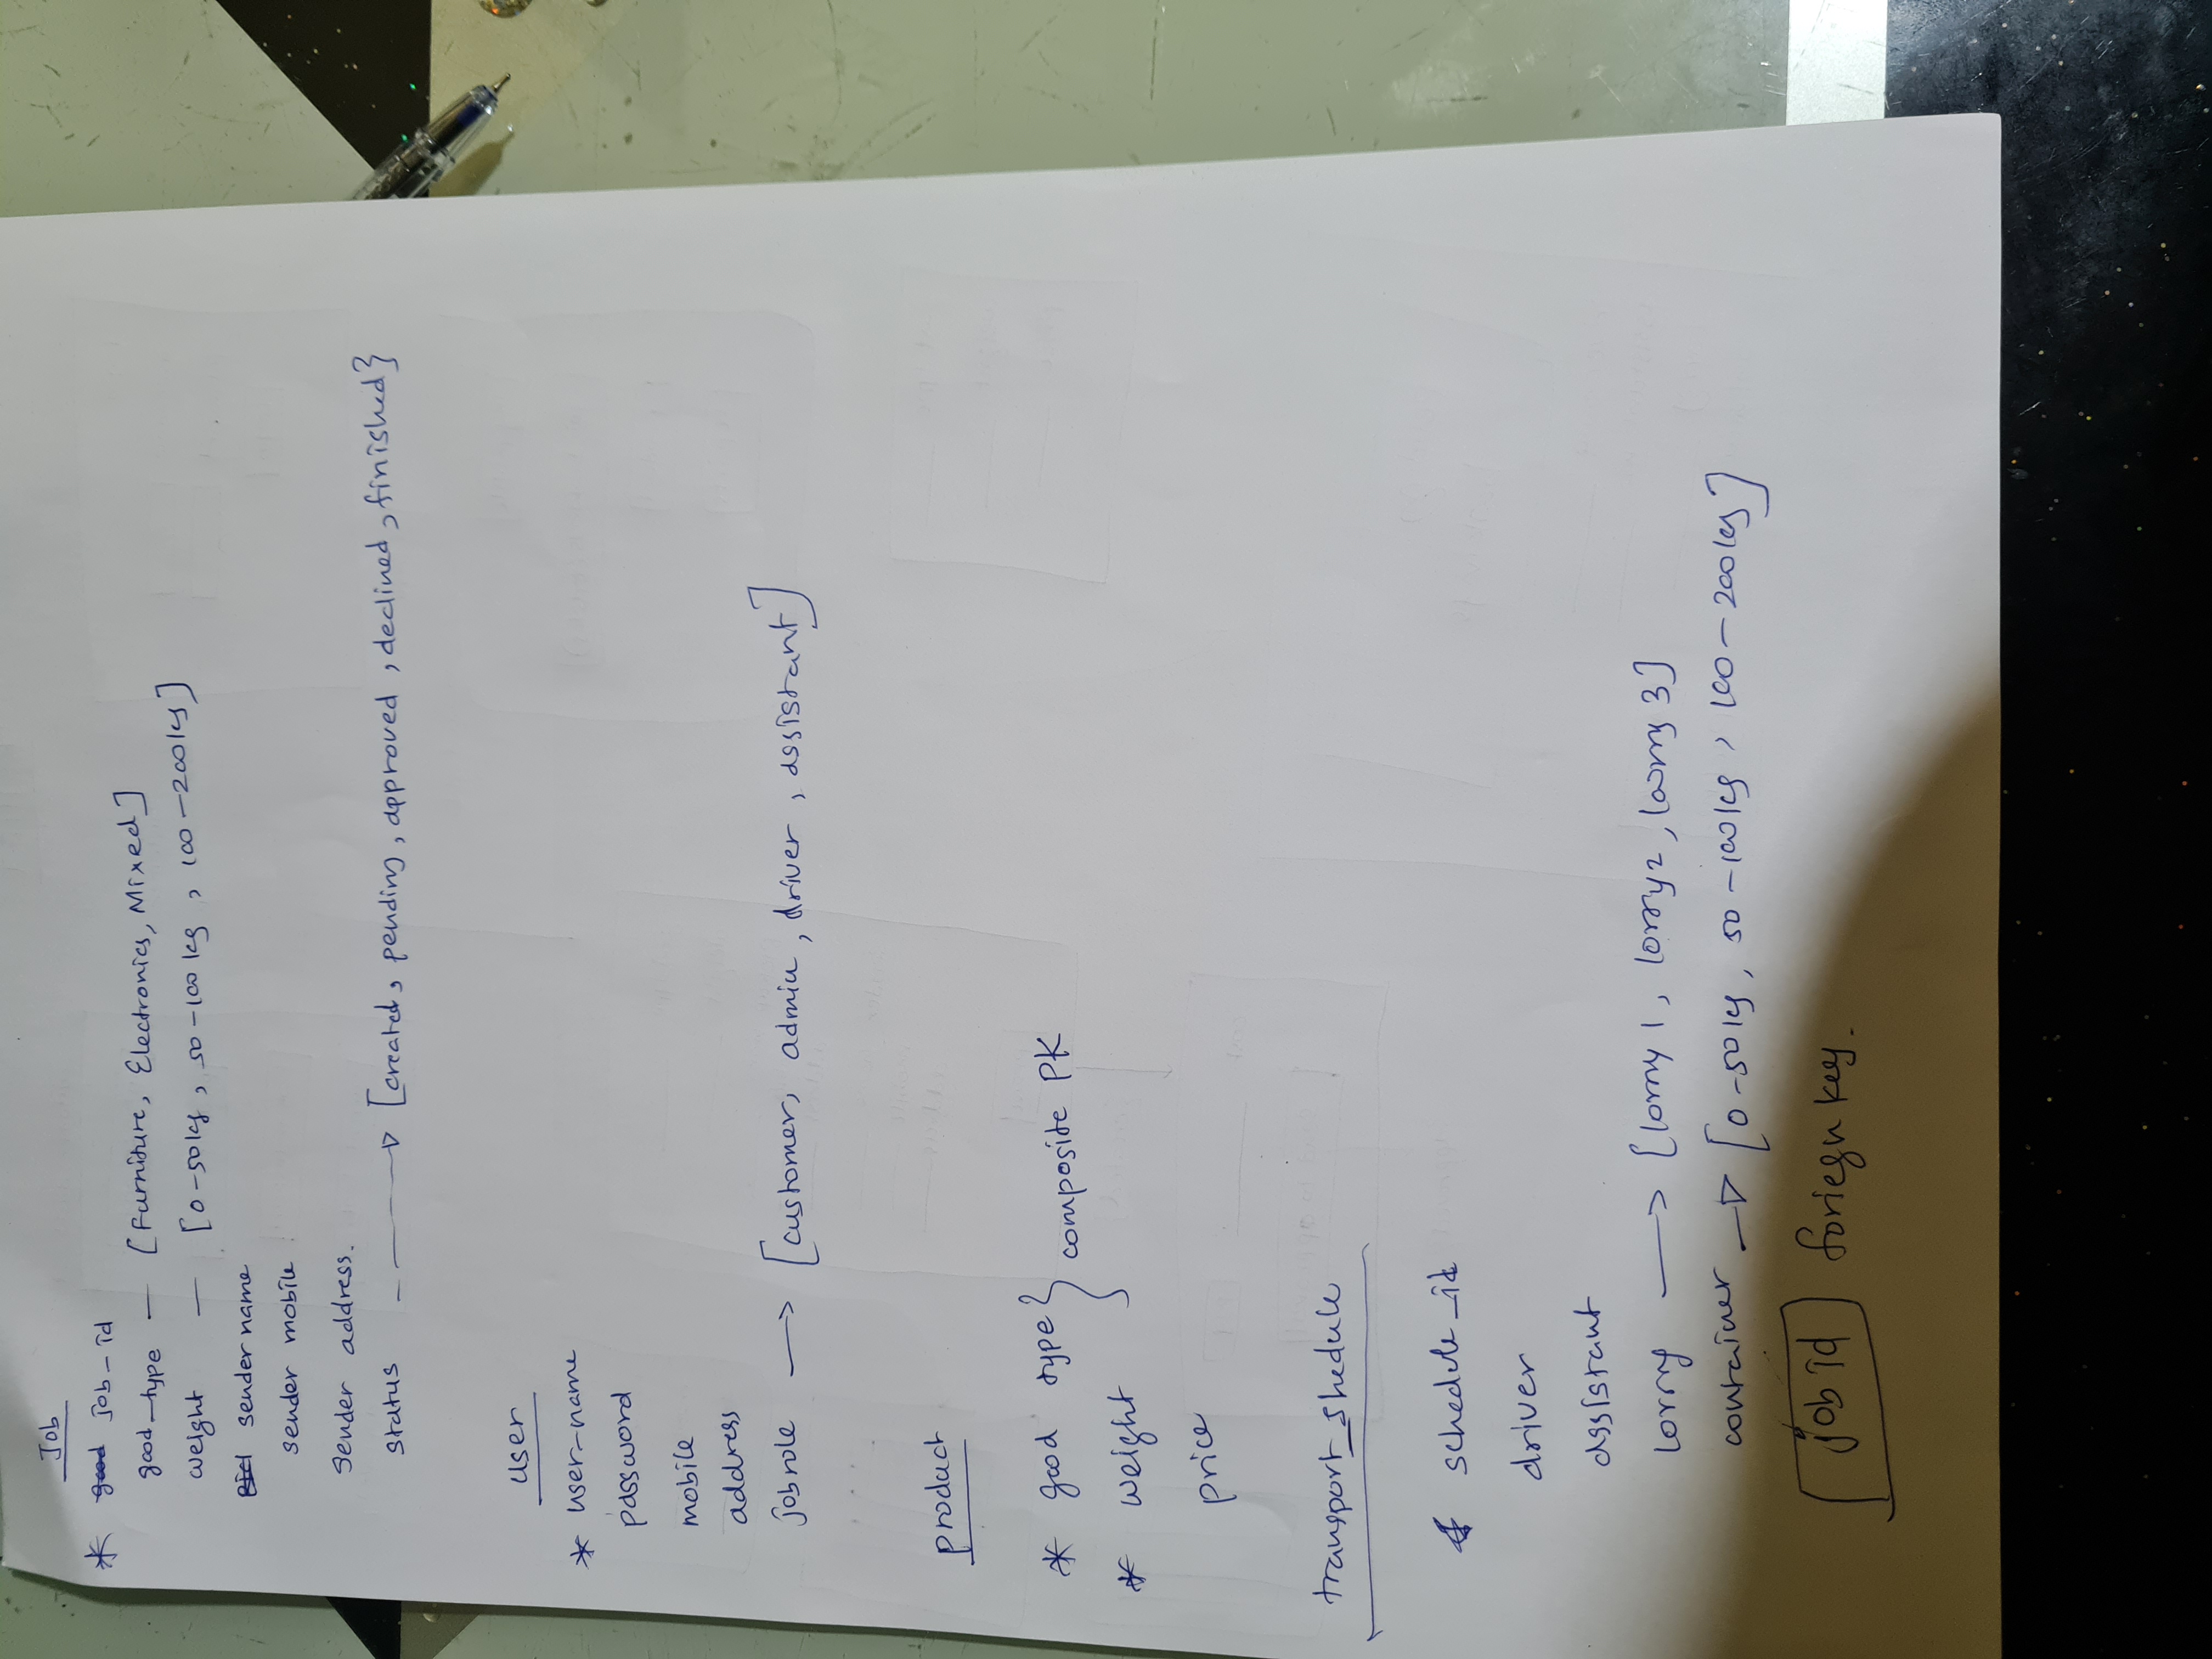 Job
* good job_id
good_type — [Furniture, Electronics, Mixed]
weight — [0-50kg, 50-100 kg, 100-200kg]
sender name
sender mobile
Sender address.
status → [created, pending, approved, declined, finished}
user
* user-name
password
mobile
address
jobrole → [customer, admin, driver, assistant]
product
* good type } composite PK
* weight
price
transport_shedule
* schedule_id
driver
assistant
lorry → [lorry 1, lorry 2, lorry 3]
container → [0-50kg, 50-100kg, 100-200kg]
job id foriegn key.